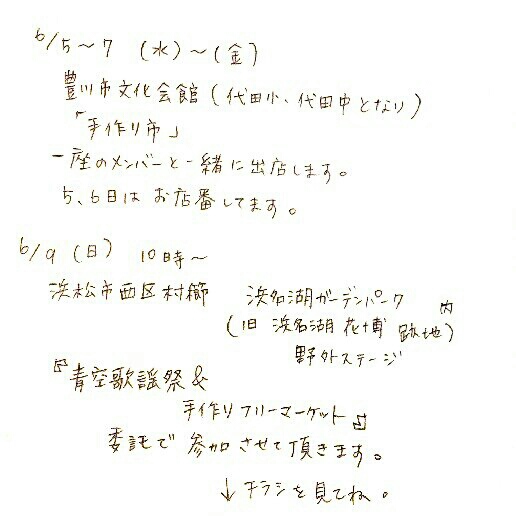 6/5～7 (水)～(金)
豊川市文化会館(代田小、代田中となり)
「手作り市」
一座のメンバーと一緒に出店します。
5、6日は お店番してます。
6/9 (日) 10時～
浜松市西区村櫛 浜名湖ガーデンパーク内
(旧 浜名湖 花博 跡地)
野外ステージ
『青空歌謡祭&
手作りフリーマーケット』
委託で 参加させて頂きます。
↓チラシを見てね。